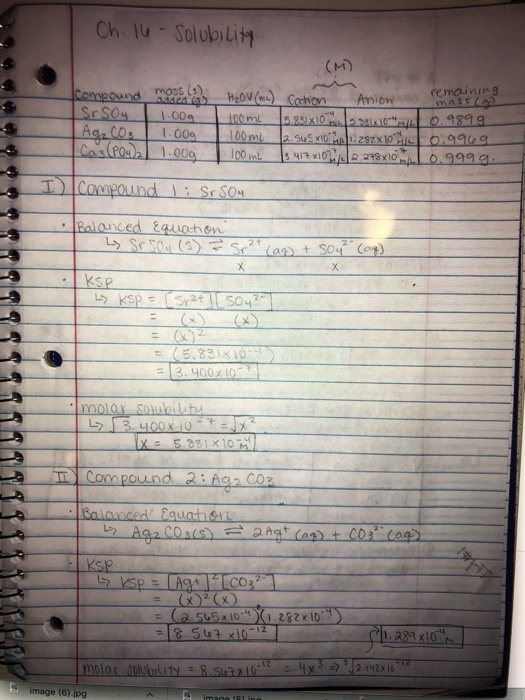 Ch. 16 - Solubility
(M)
Compound mass (s) added (g) H2O V (mL) Cation Anion remaining mass (g)
SrSO4 1.00g 100mL 5.831x10⁻⁴ M/L 5.831x10⁻⁴ M/L 0.989g
Ag2CO3 1.00g 100mL 2.565x10⁻⁴ M/L 1.282x10⁻⁴ M/L 0.996g
Ca3(PO4)2 1.00g 100mL 3.417x10⁻⁷ M/L 2.278x10⁻⁷ M/L 0.999g.
I) Compound 1: SrSO4
· Balanced Equation
↳ SrSO4 (s) ⇌ Sr²⁺ (aq) + SO4²⁻ (aq)
x x
· KSP
↳ KSP = [Sr²⁺][SO4²⁻]
= (x) (x)
= (x)²
= (5.831x10⁻⁴)
= 3.400x10⁻⁷
· molar solubility
↳ √3.400x10⁻⁷ = √x²
x = 5.831x10⁻⁴ M
II) Compound 2: Ag2CO3
· Balanced Equation
↳ Ag2CO3(s) ⇌ 2Ag⁺ (aq) + CO3²⁻ (aq)
· KSP
↳ KSP = [Ag⁺]²[CO3²⁻]
= (x)²(x)
= (2.565x10⁻⁴)²(1.282x10⁻⁴)
= 8.567x10⁻¹² 1.289x10⁻⁴ M
molar solubility = 8.567x10⁻¹² = 4x³ ⇒ ³√2.142x10⁻¹²
image (6).jpg